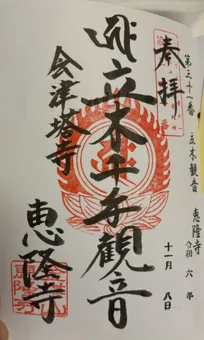 第三十一番 立木観音 恵隆寺
令和 六年 十一月 八日
奉拝
立木千手観音
会津塔寺
恵隆寺